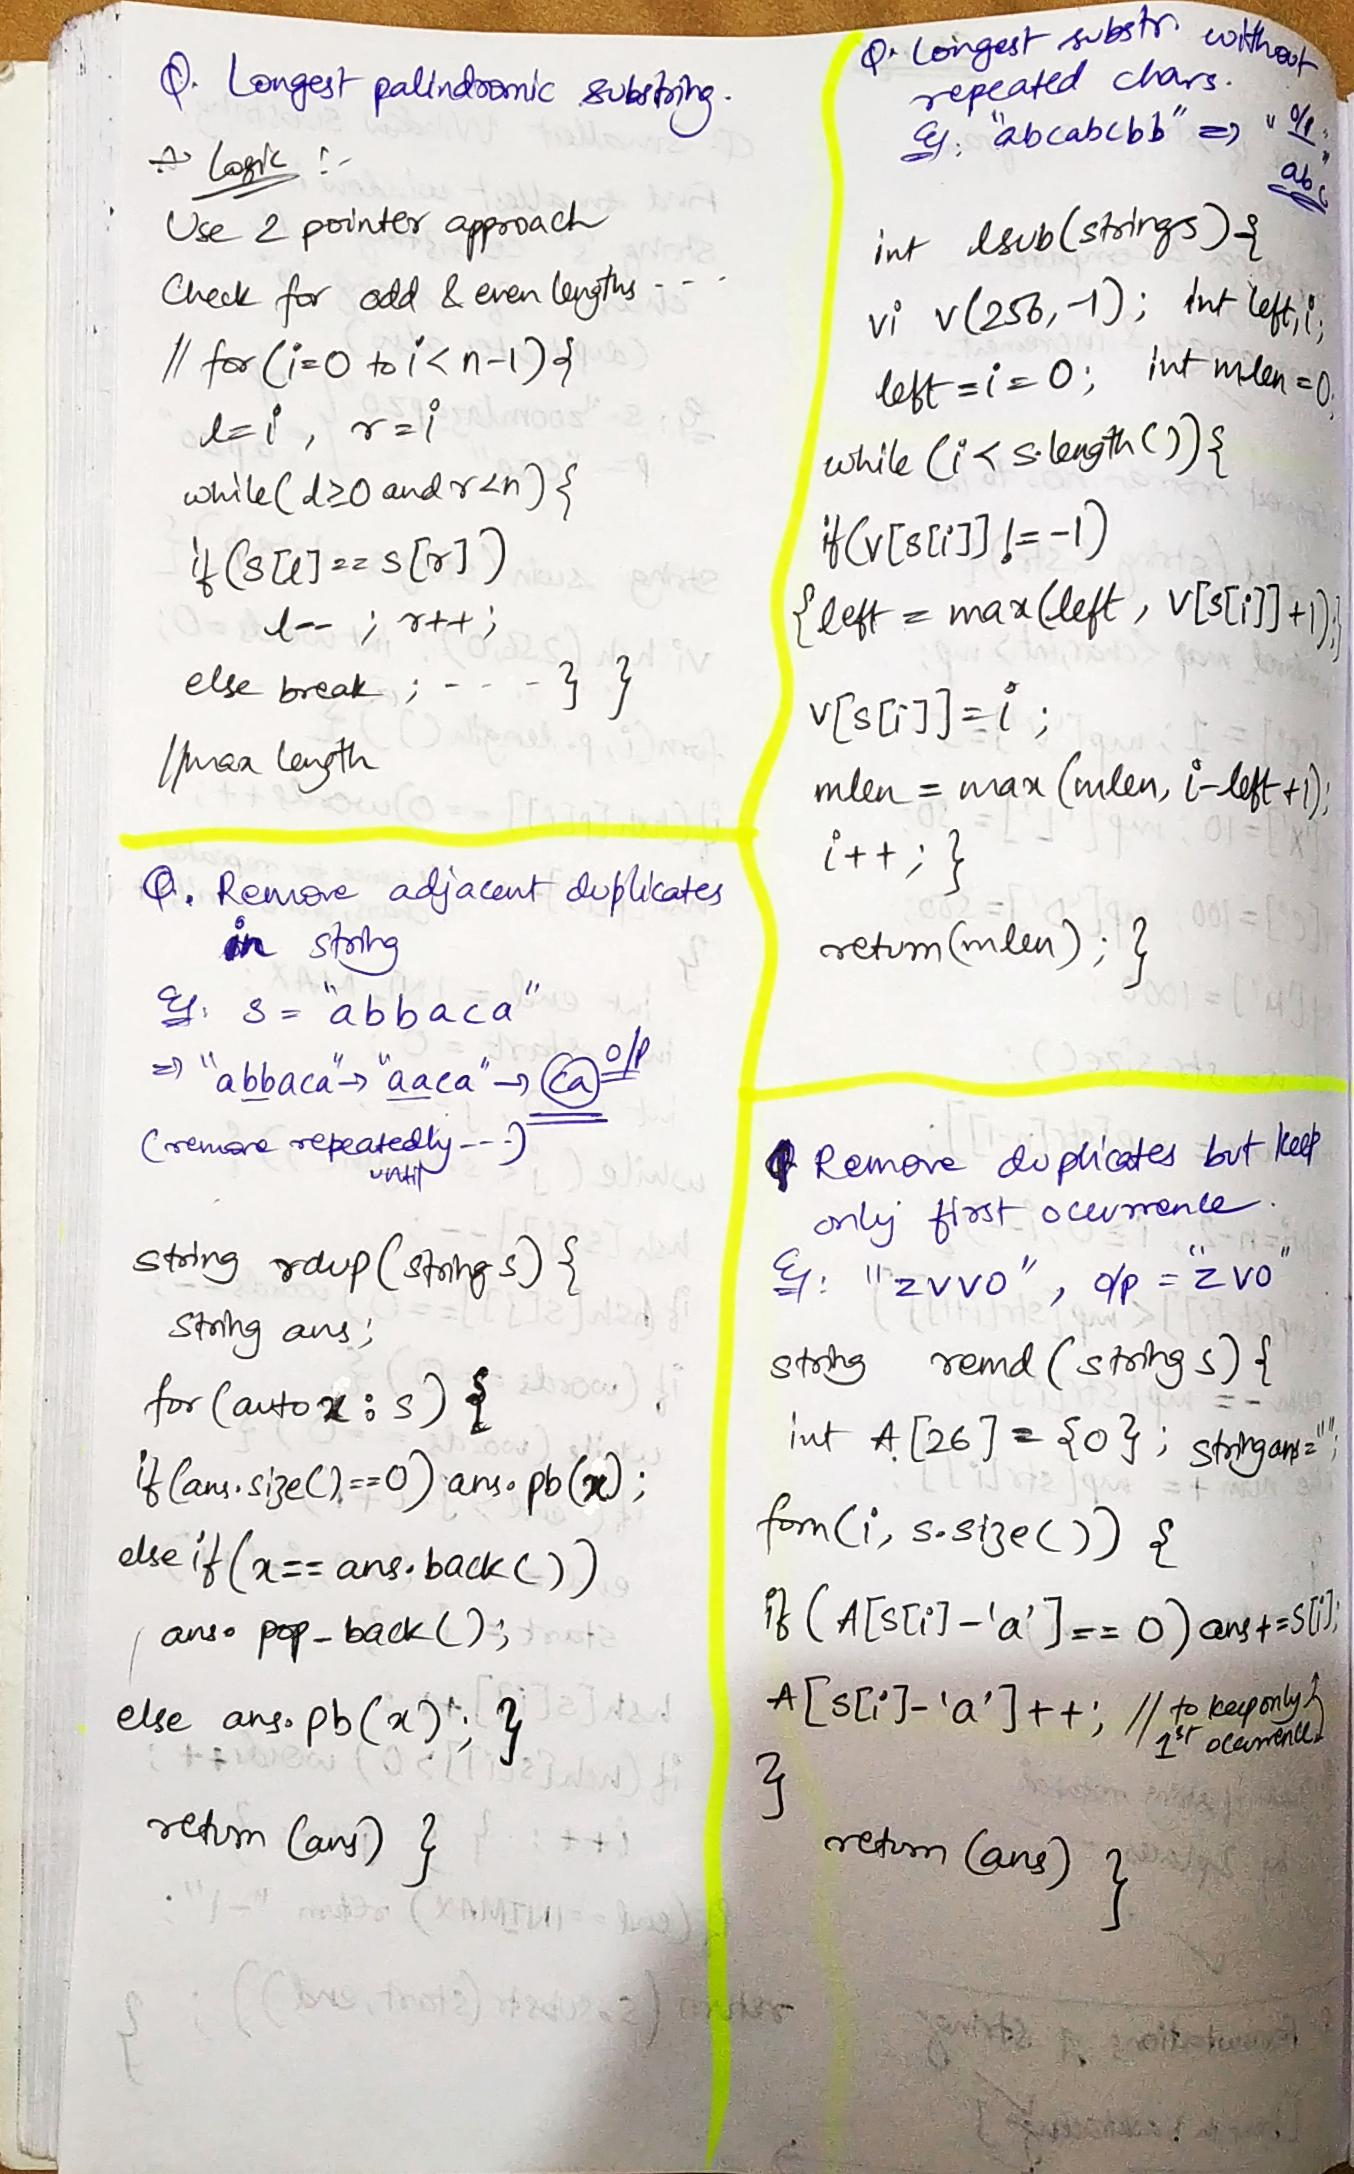 Q. Longest palindromic substring.
→ Logic :-
Use 2 pointer approach
Check for odd & even lengths - - -
// for (i=0 to i<n-1) {
l=i , r=i
while( l≥0 and r<n) {
if (s[l] == s[r])
l-- ; r++ ;
else break ; - - - } }
//max length
Q. Remove adjacent duplicates
in string
Eg. s = "abbaca"
=> "abbaca" → "aaca" → ca o/p
(remove repeatedly - - -)
until
string rdup(string s) {
string ans;
for (auto x : s) {
if (ans.size()==0) ans.pb(x);
else if (x== ans.back())
ans. pop_back();
else ans.pb(x); }
return (ans) }
Q. Longest substr. without
repeated chars.
Eg. "abcabcbb" => o/p
"abc"
int lsub(string s) {
vi v(256,-1); int left,i;
left = i = 0; int mlen = 0;
while (i < s.length()) {
if(v[s[i]] != -1)
{ left = max(left, v[s[i]]+1);}
v[s[i]] = i ;
mlen = max (mlen, i-left+1);
i++ ; }
return(mlen) ; }
Q Remove duplicates but keep
only first ocurrence.
Eg: "zvvo", o/p = "zvo"
string remd (string s) {
int A[26] = {0} ; string ans="";
forn(i, s.size()) {
if (A[s[i]-'a'] == 0) ans+=s[i];
A[s[i]-'a']++; // to keep only
1st ocurrence
}
return (ans) }